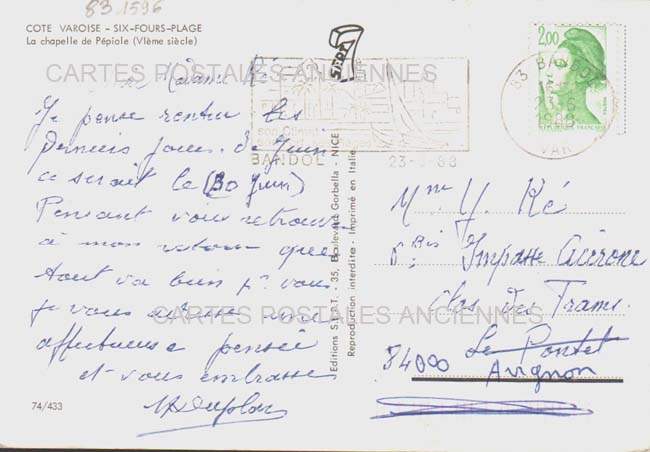 83.1596
COTE VAROISE - SIX-FOURS-PLAGE
La chapelle de Pépiole (VIème siècle)
CARTES POSTALES ANCIENNES
Madame Ké
Je pense rentrer les
derniers jours de Juin
ce serait le (30 Juin)
Pensant vous retrouver
à mon retour que
tout va bien pr vous.
je vous adresse une
CARTES POSTALES ANCIENNES
affectueuse pensée
et vous embrasse
74/433
Editions S.E.P.T. - 35, Boulevard Gorbella - NICE
Reproduction interdite - Imprimé en Italie
BANDOL
23-6-88
83 BANDOL
23-6
1988
VAR
2,00
Mme Y. Ké
6 Bis Impasse Cicérone
Clos des Trams.
84000 Le Pontet
Avignon